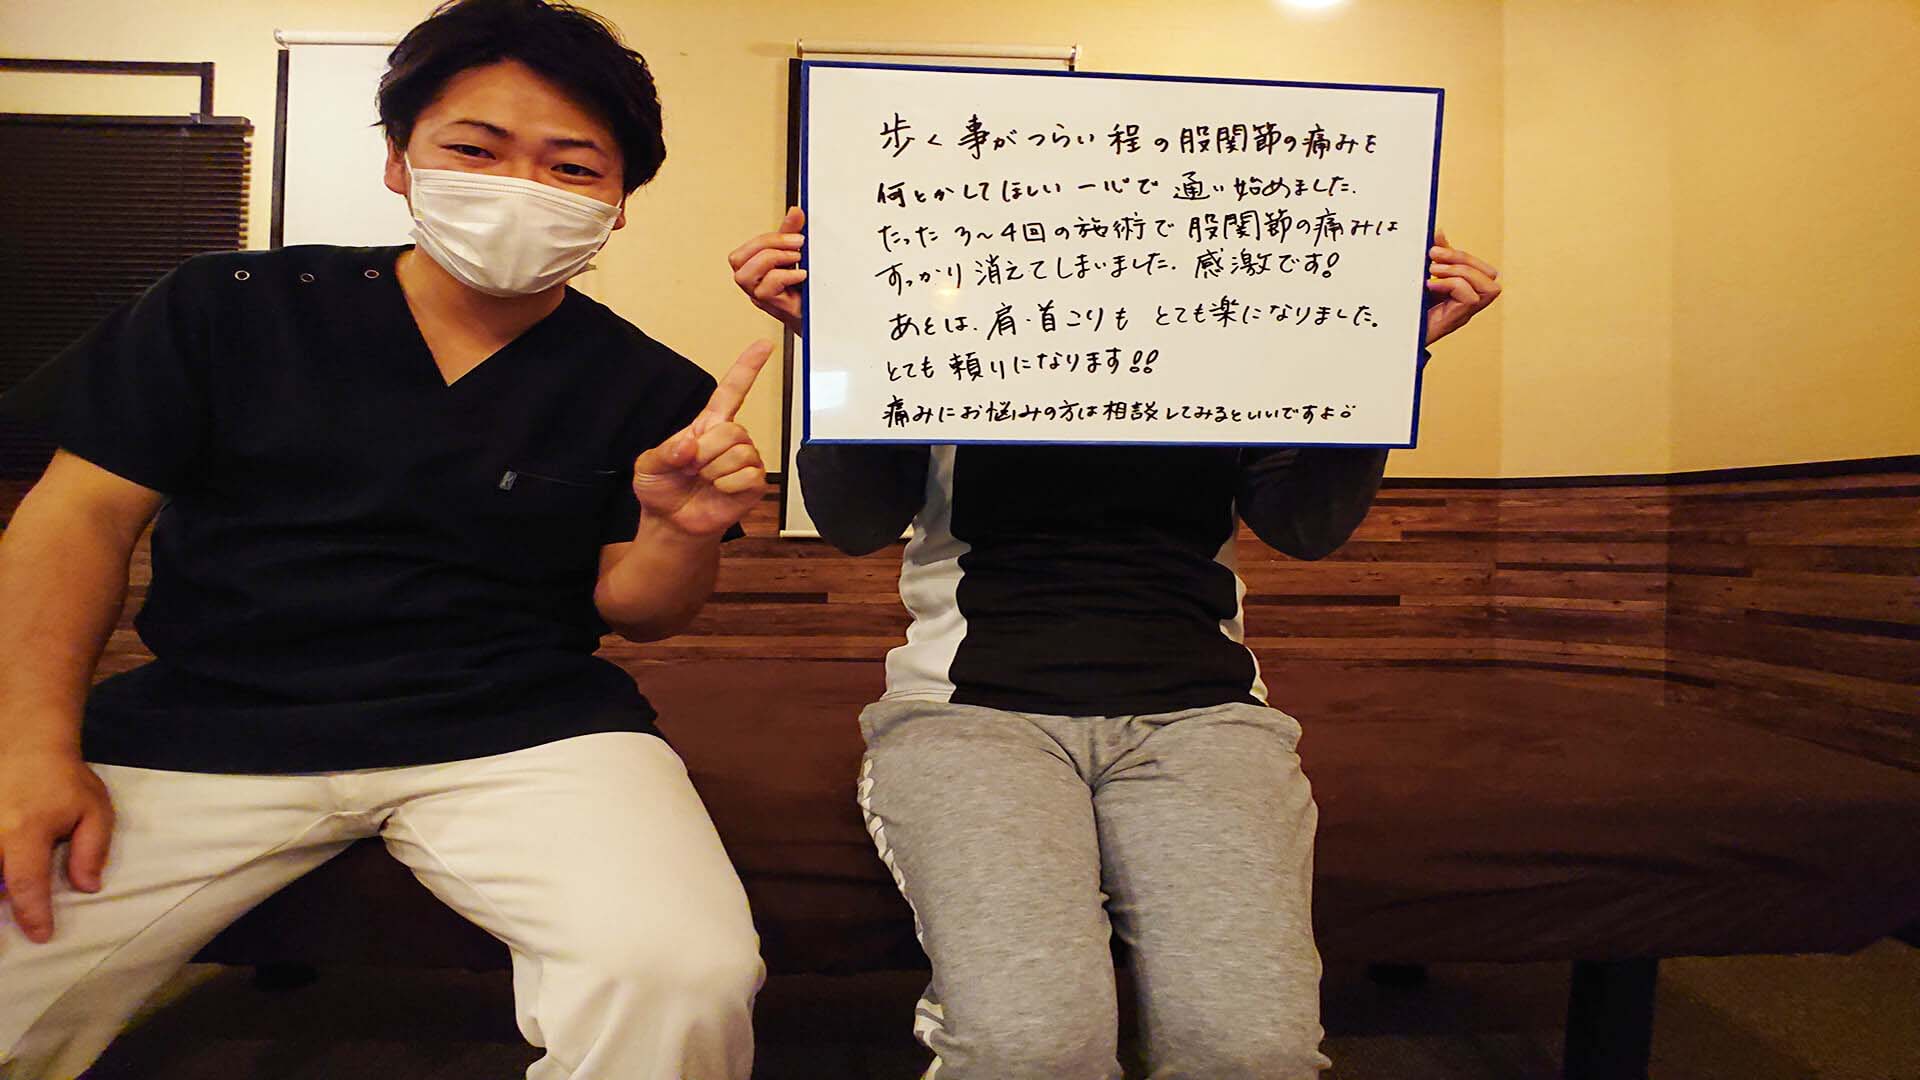 歩く事がつらい程の股関節の痛みを
何とかしてほしい一心で通い始めました.
たった3〜4回の施術で股関節の痛みは
すっかり消えてしまいました. 感激です!
あとは、肩・首こりもとても楽になりました。
とても頼りになります!!
痛みにお悩みの方は相談してみるといいですよ